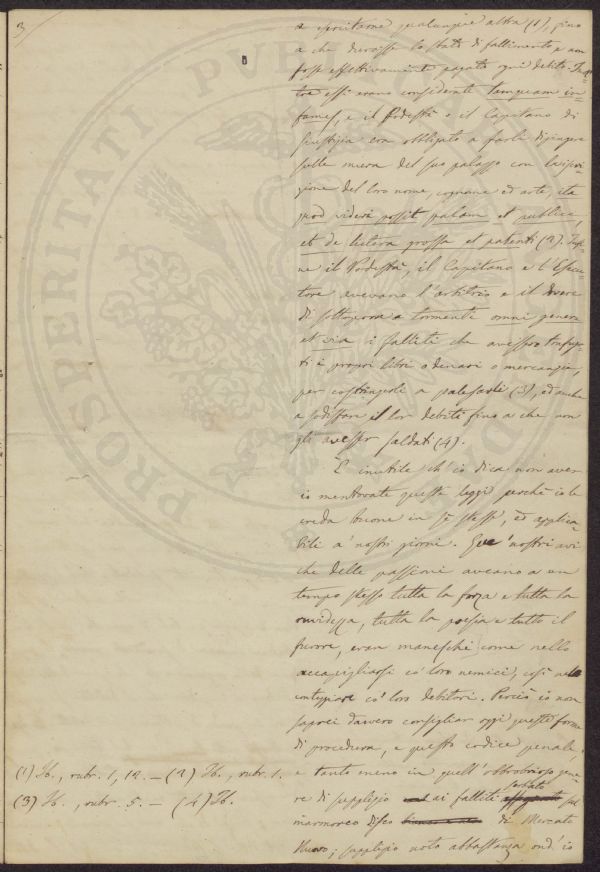 3
a esercitarne qualunque altra (1), fino
a che durasse lo stato di fallimento e non
fosse effettivamente pagato ogni debito. Inol
tre essi erano considerati tamquam in-
fames, e il Podestà o il Capitano di
Giustizia era obbligato a farli dipingere
sulle mura del suo palazzo con inscri-
zione del loro nome, cognome ed arte, ita
quod videri possit palam et publice,
et de lictera grossa et patenti (2). Infi-
ne il Podestà, il Capitano e l'Esecu-
tore avevano l'arbitrio e il dovere
di sottoporre a tormenti omni genere
et via i falliti che avessero trafuga-
ti i propri libri o denari o mercanzie,
per costringerli a palesarli (3), ed anche
a sodisfare il lor debito fino a che non
gli avesser saldati (4).
È inutile ch'io dica non aver
io mentovate queste leggi perchè io le
creda buone in sè stesse, ed applica-
bili a' nostri giorni. Que' nostri avi
che delle passioni aveano a un
tempo stesso tutta la forza e tutta la
ruvidezza, tutta la poesia e tutto il
furore, eran maneschi come nello
accapigliarsi co' loro nemici, così nel
conteggiare co' loro debitori. Perciò io non
saprei davvero consigliar oggi queste forme
di procedura, e questo codice penale,
e tanto meno in quell'obbrobrioso gene-
re di supplizio ai falliti serbato sul
marmoreo disco di Mercato
Nuovo; supplizio noto abbastanza ond'io
(1) Ib., rubr. 1, 12. — (2) Ib., rubr. 1.
(3) Ib., rubr. 5. — (4) Ib.
PROSPERITATI PUBLICAE